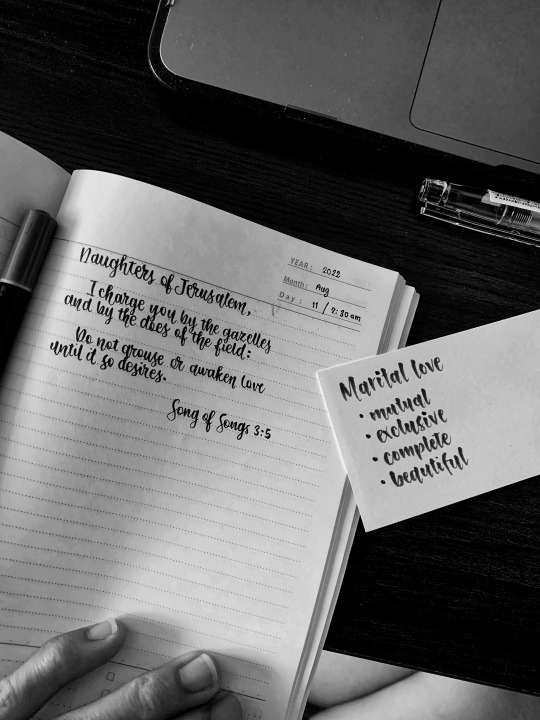 YEAR: 2022
Month: Aug
Day: 11 / 7:30 am
Daughters of Jerusalem,
I charge you by the gazelles
and by the does of the field:
Do not arouse or awaken love
until it so desires.
Song of Songs 3:5
Marital love
• mutual
• exclusive
• complete
• beautiful